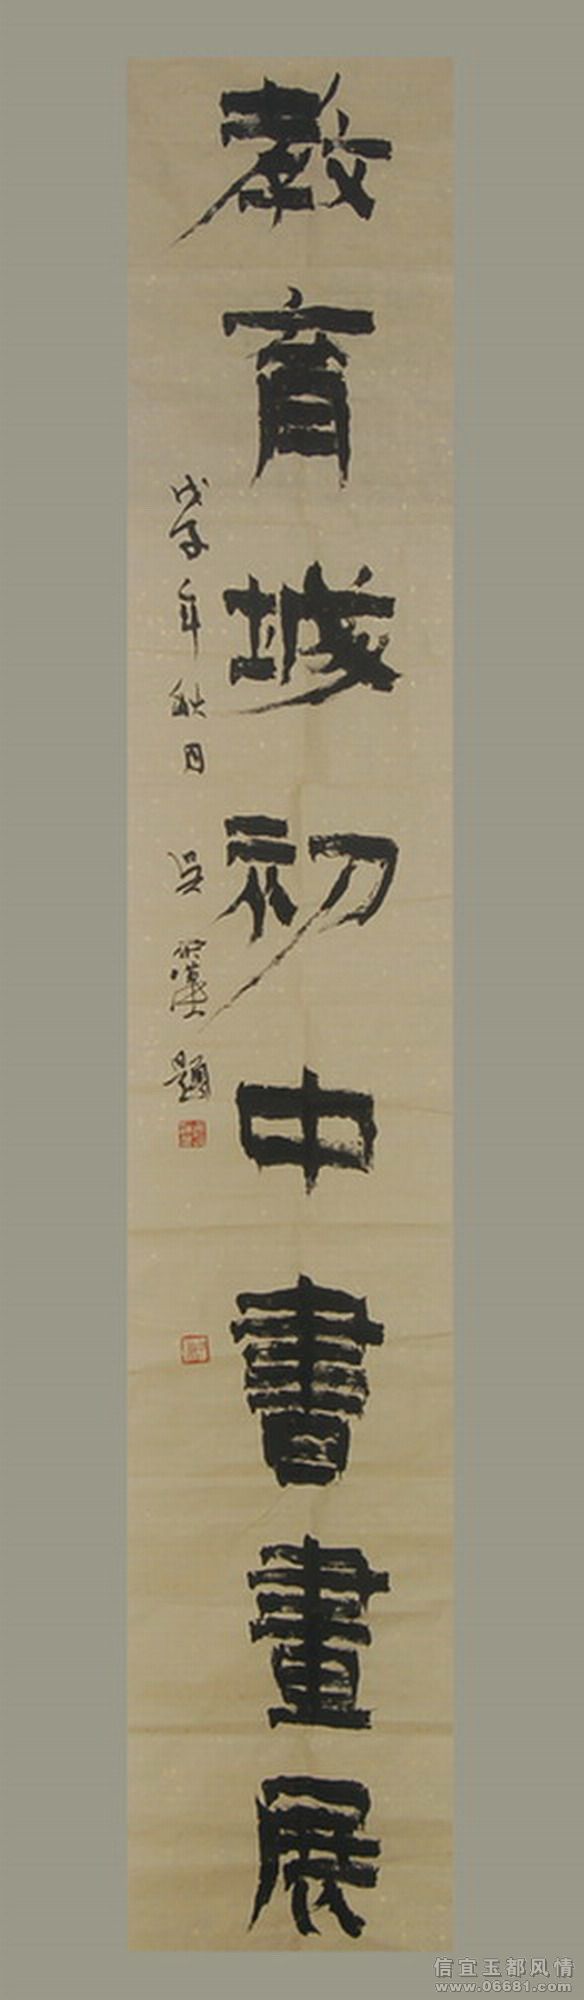 教育城初中書畫展
戊子年秋月 吳 題
信宜玉都风情
www.06681.com